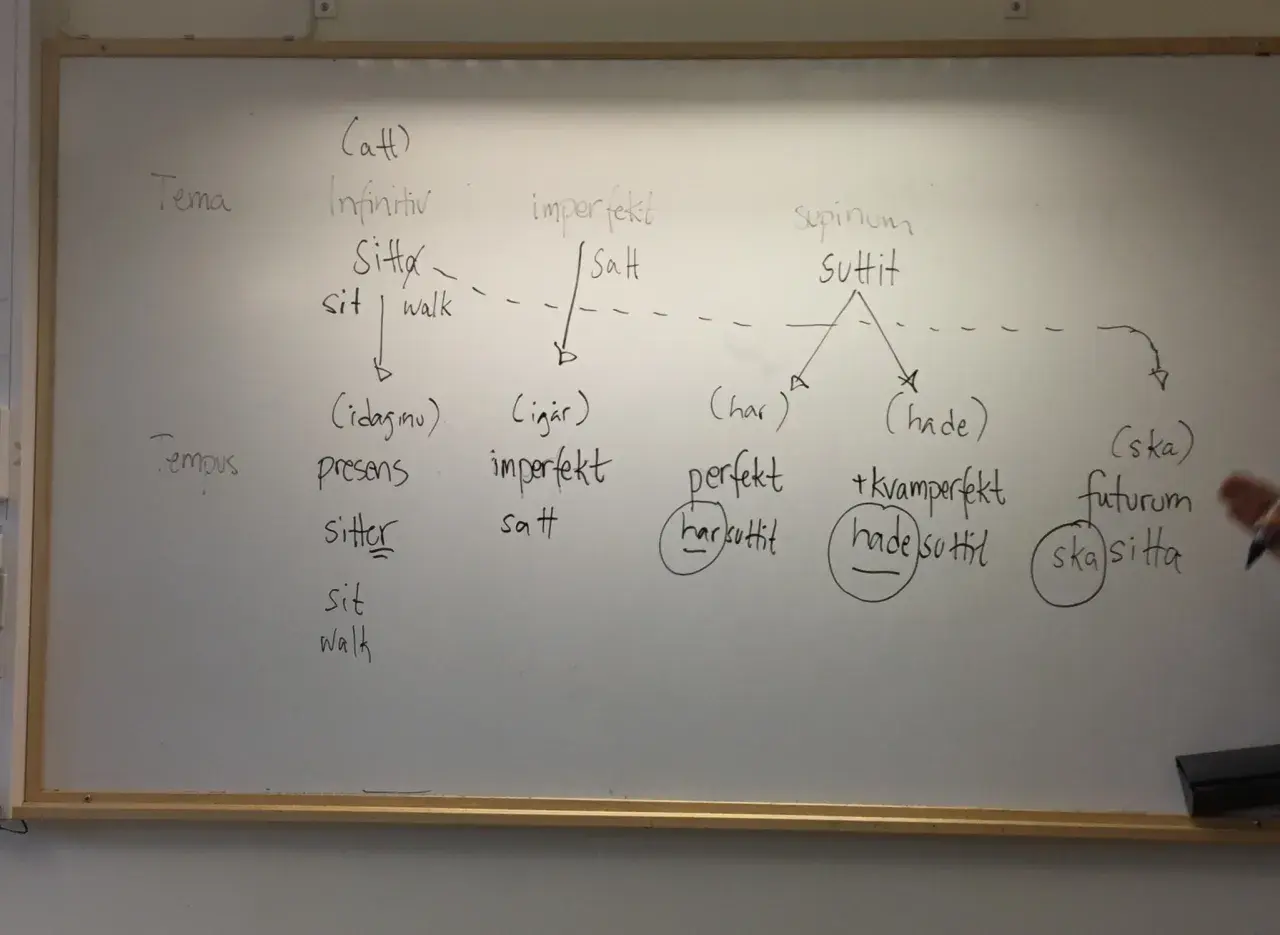 (att)
Tema Infinitiv imperfekt supinum
sitta satt suttit
sit walk
(idag, nu) (igår) (har) (hade) (ska)
Tempus presens imperfekt perfekt +kvamperfekt futurum
sitter satt har suttit hade suttit ska sitta
sit
walk